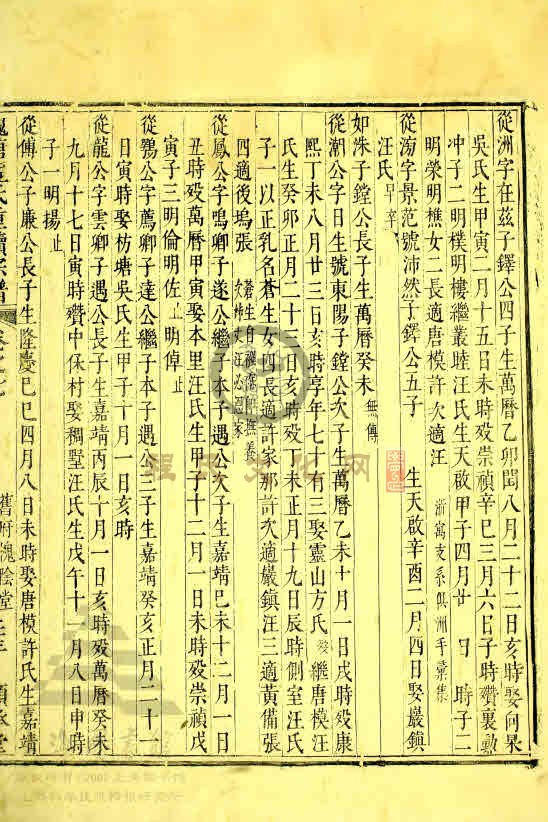 從洲字在茲子鐸公四子生萬曆乙卯閏八月二十二日亥時娶向杲
吳氏生甲寅二月十五日未時殁崇禎辛巳三月六日子時殯裏
冲子二明樸明樓繼叢睦汪氏生天啟甲子四月廿 日 時子二
明榮明樵女二長適唐模許次適汪 
從淓字景范號沛然子鐸公五子 生天啟辛酉二月四日娶巖鎮
汪氏早卒
如洙子鏜公長子生萬曆癸未 無傳
從潮公字日生號東陽子鏜公次子生萬曆乙未十月一日戌時殁康
熙丁未八月廿三日亥時享年七十有三娶靈山方氏 繼唐模汪
氏生癸卯正月二十三日亥時殁丁未正月十九日辰時側室汪氏
子一以正乳名蒼生女四長適許家那許次適巖鎮汪三適黃備張
四適後塢張
從鳳公字鳴卿子遂公繼子本子遇公次子生嘉靖己未十二月一日
丑時殁萬曆甲寅娶本里汪氏生甲子十二月一日未時殁崇禎戊
寅子三明倫明佐止明倬止
從鶚公字薦卿子達公繼子本子遇公三子生嘉靖癸亥正月二十一
日寅時娶枋塘吳氏生甲子十月一日亥時
從龍公字雲卿子遇公長子生嘉靖丙辰十月一日亥時殁萬曆癸未
九月十七日寅時殯中保村娶稠墅汪氏生戊午十一月八日申時
子一明揚止
從傅公子廉公長子生隆慶己巳四月八日未時娶唐模許氏生嘉靖
程氏文化网